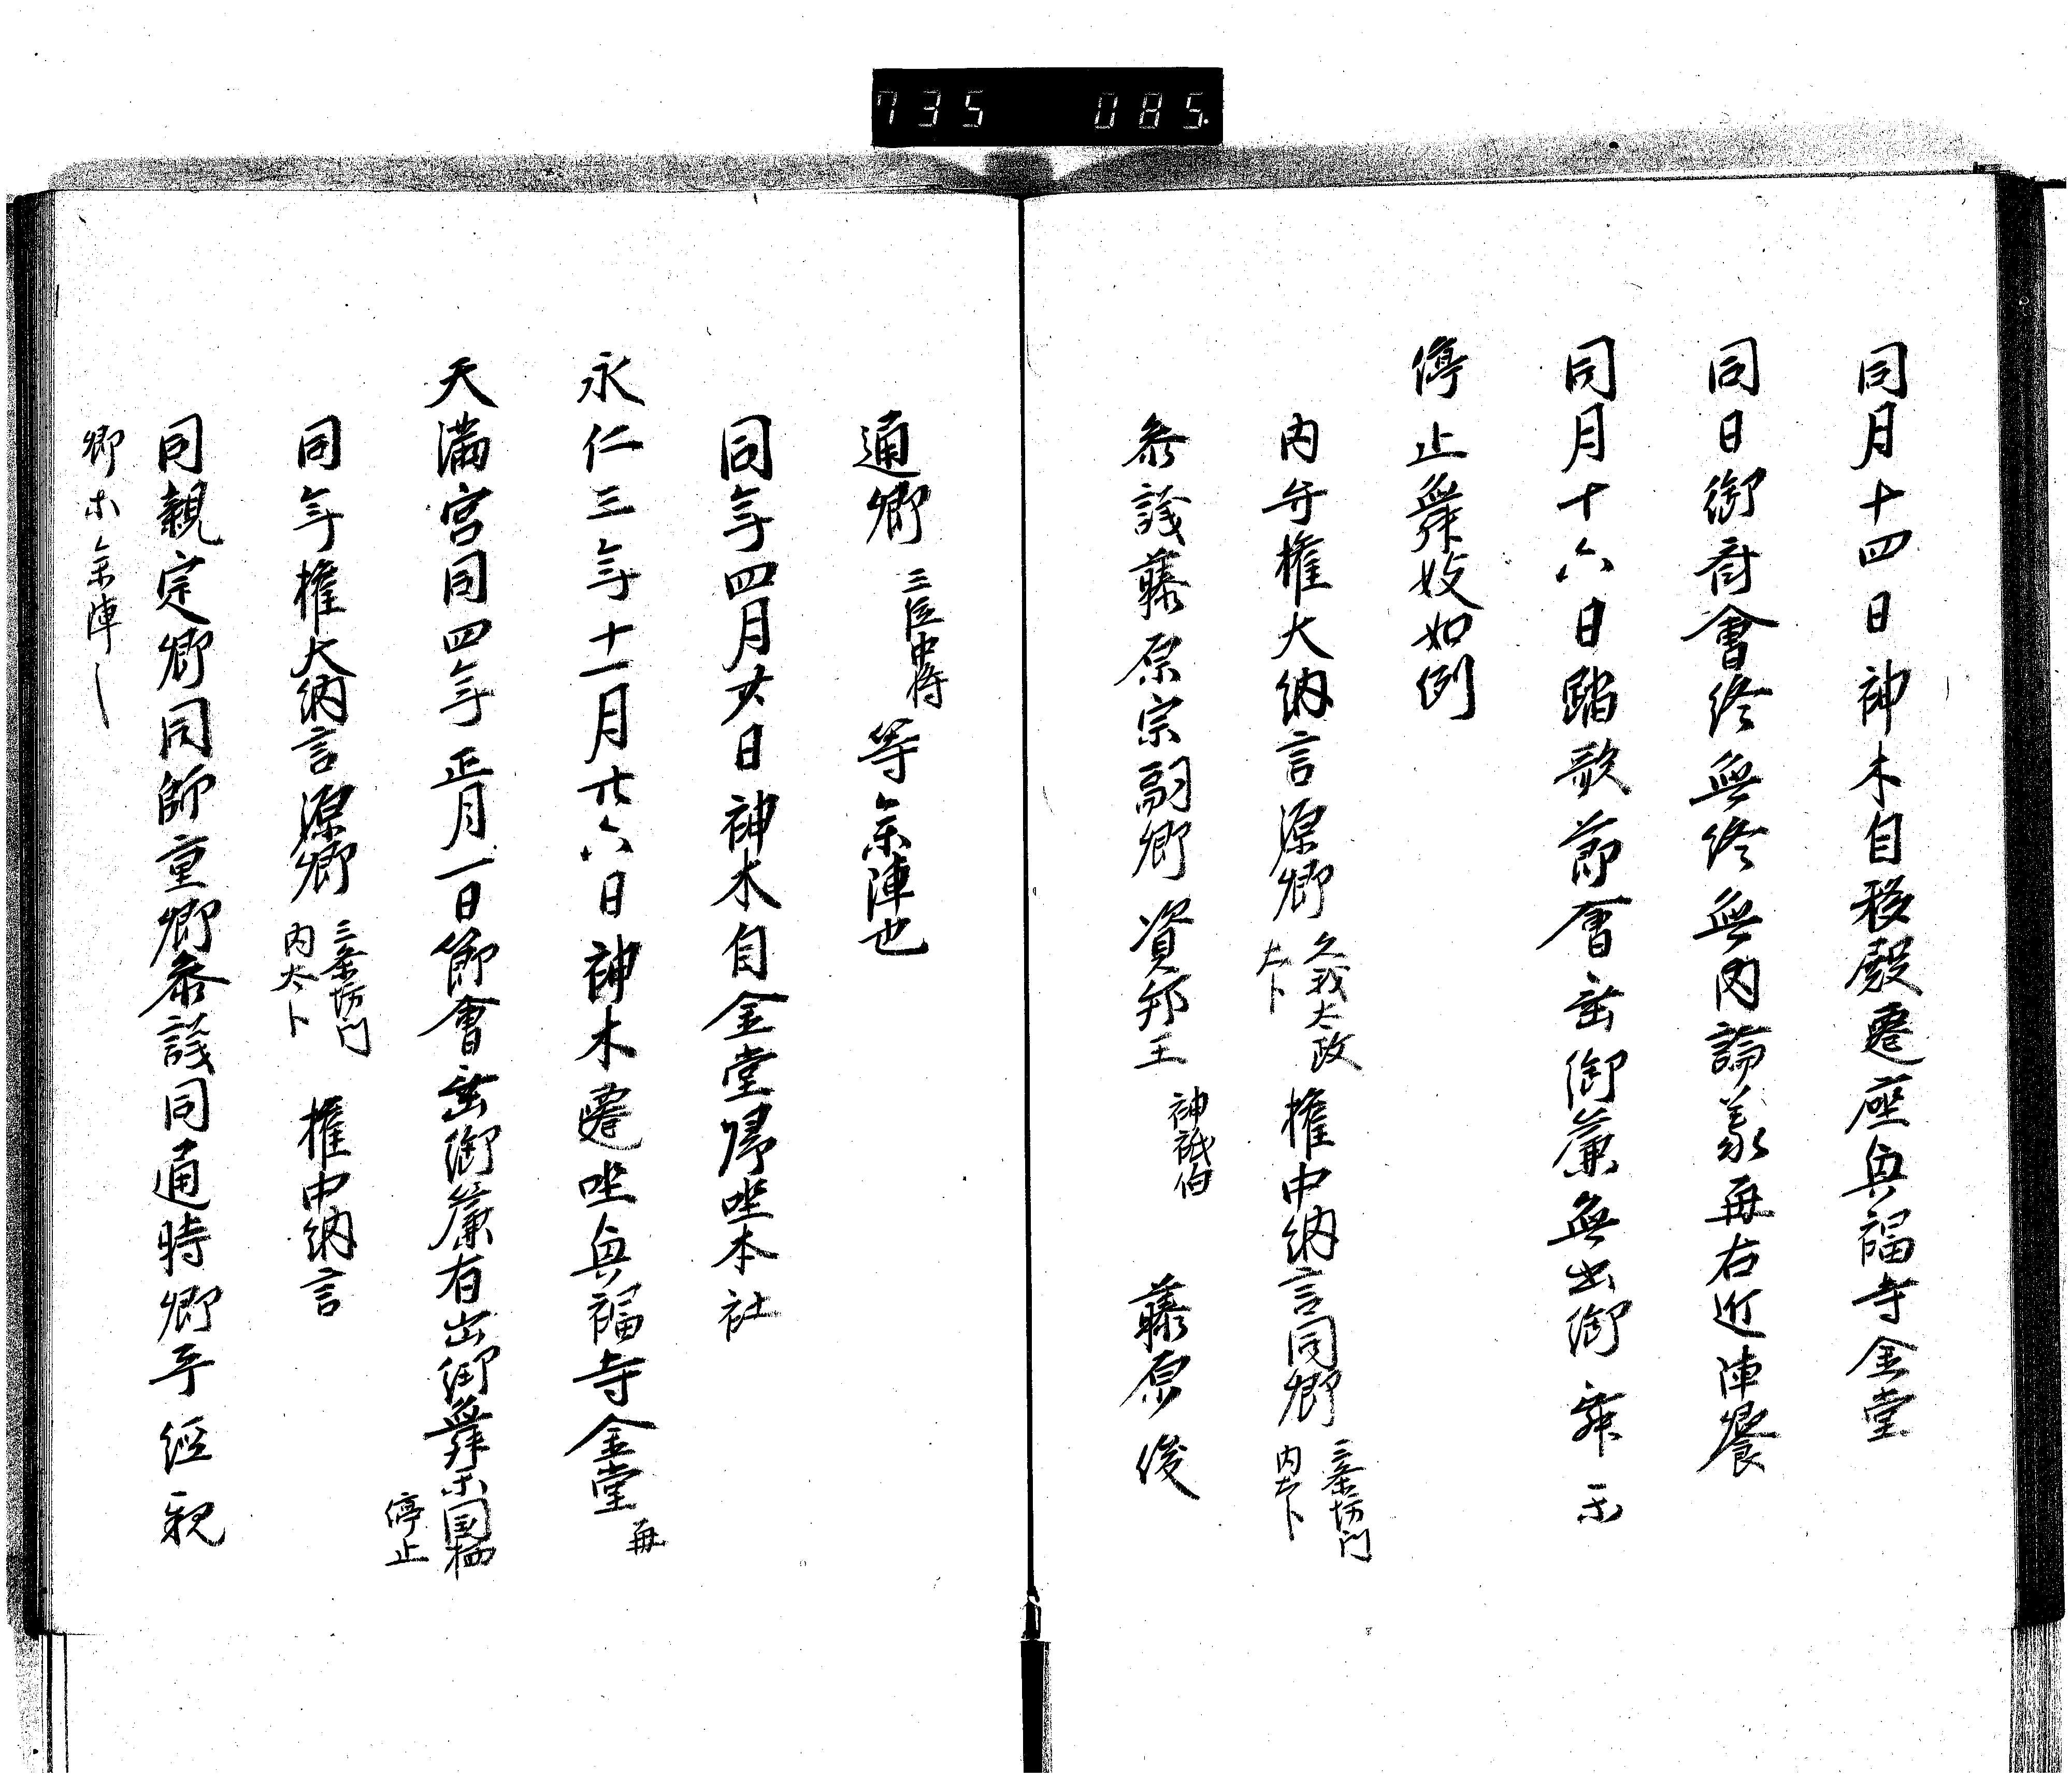 735 085
同月十四日神木自移殿遷座興福寺金堂
同日御斎會終無終無内論義再右近陣饗
同月十六日踏歌節會垂御簾無出御舞不
停止舞妓如例
内弁権大納言源卿久我太政大卜権中納言同卿三条坊門内大卜
参議藤原宗嗣卿資邦王神祇伯藤原俊
通卿三位中将等参陣也
同年四月廿日神木自金堂帰坐本社
永仁三年十一月廿六日神木遷坐興福寺金堂再
天満宮同四年正月一日節會垂御簾有出御舞不国栖停止
同年権大納言源卿三条坊門内大卜権中納言
同親定卿同師重卿参議同通時卿平経親
卿木参陣〻